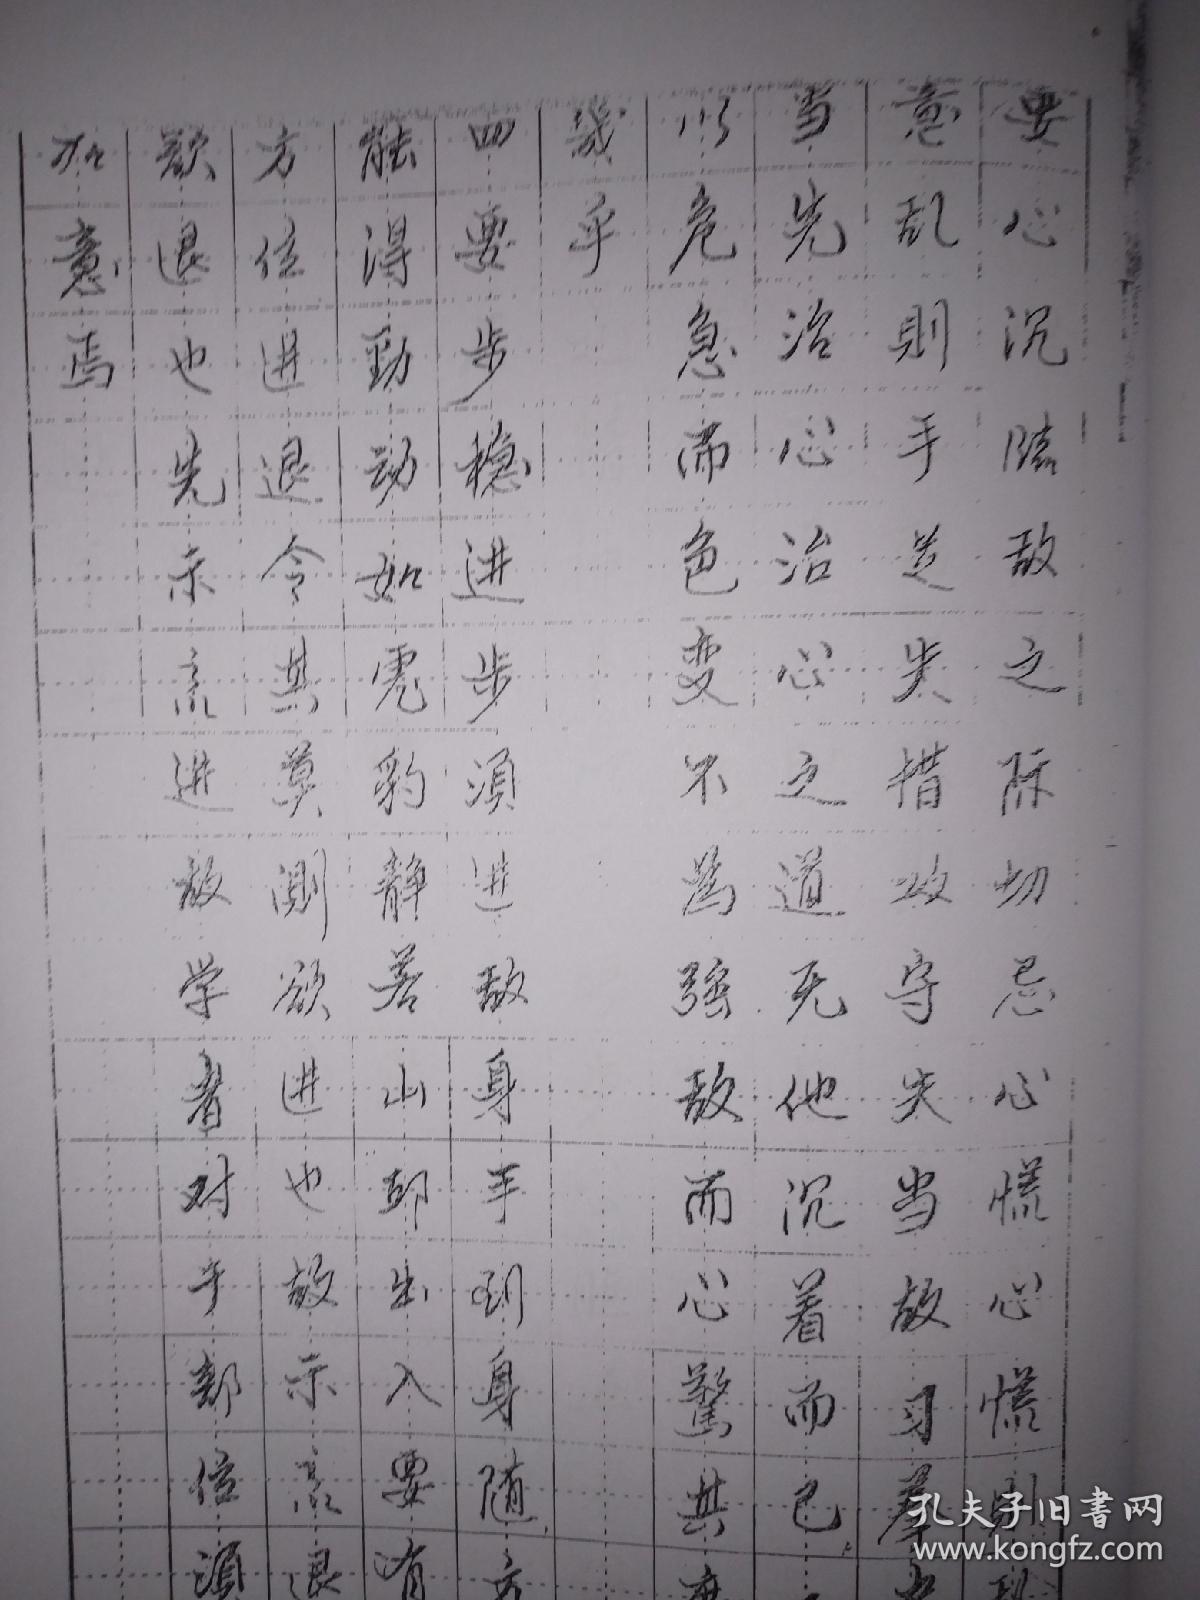 要心沉临敌之际切忌心慌心慌则
意乱则手足失措攻守失当故习拳
当先治心治心之道无他沉着而已
以危急而色变不为強敌而心驚其
幾乎
四要步稳进步须进敌身手到身随方
能得勁动如虎豹静若山卸出入要有
方位进退令其莫测欲进也故示以退
欲退也先示以进敌学者对于部位须
加意焉
孔夫子旧书网
www.kongfz.com